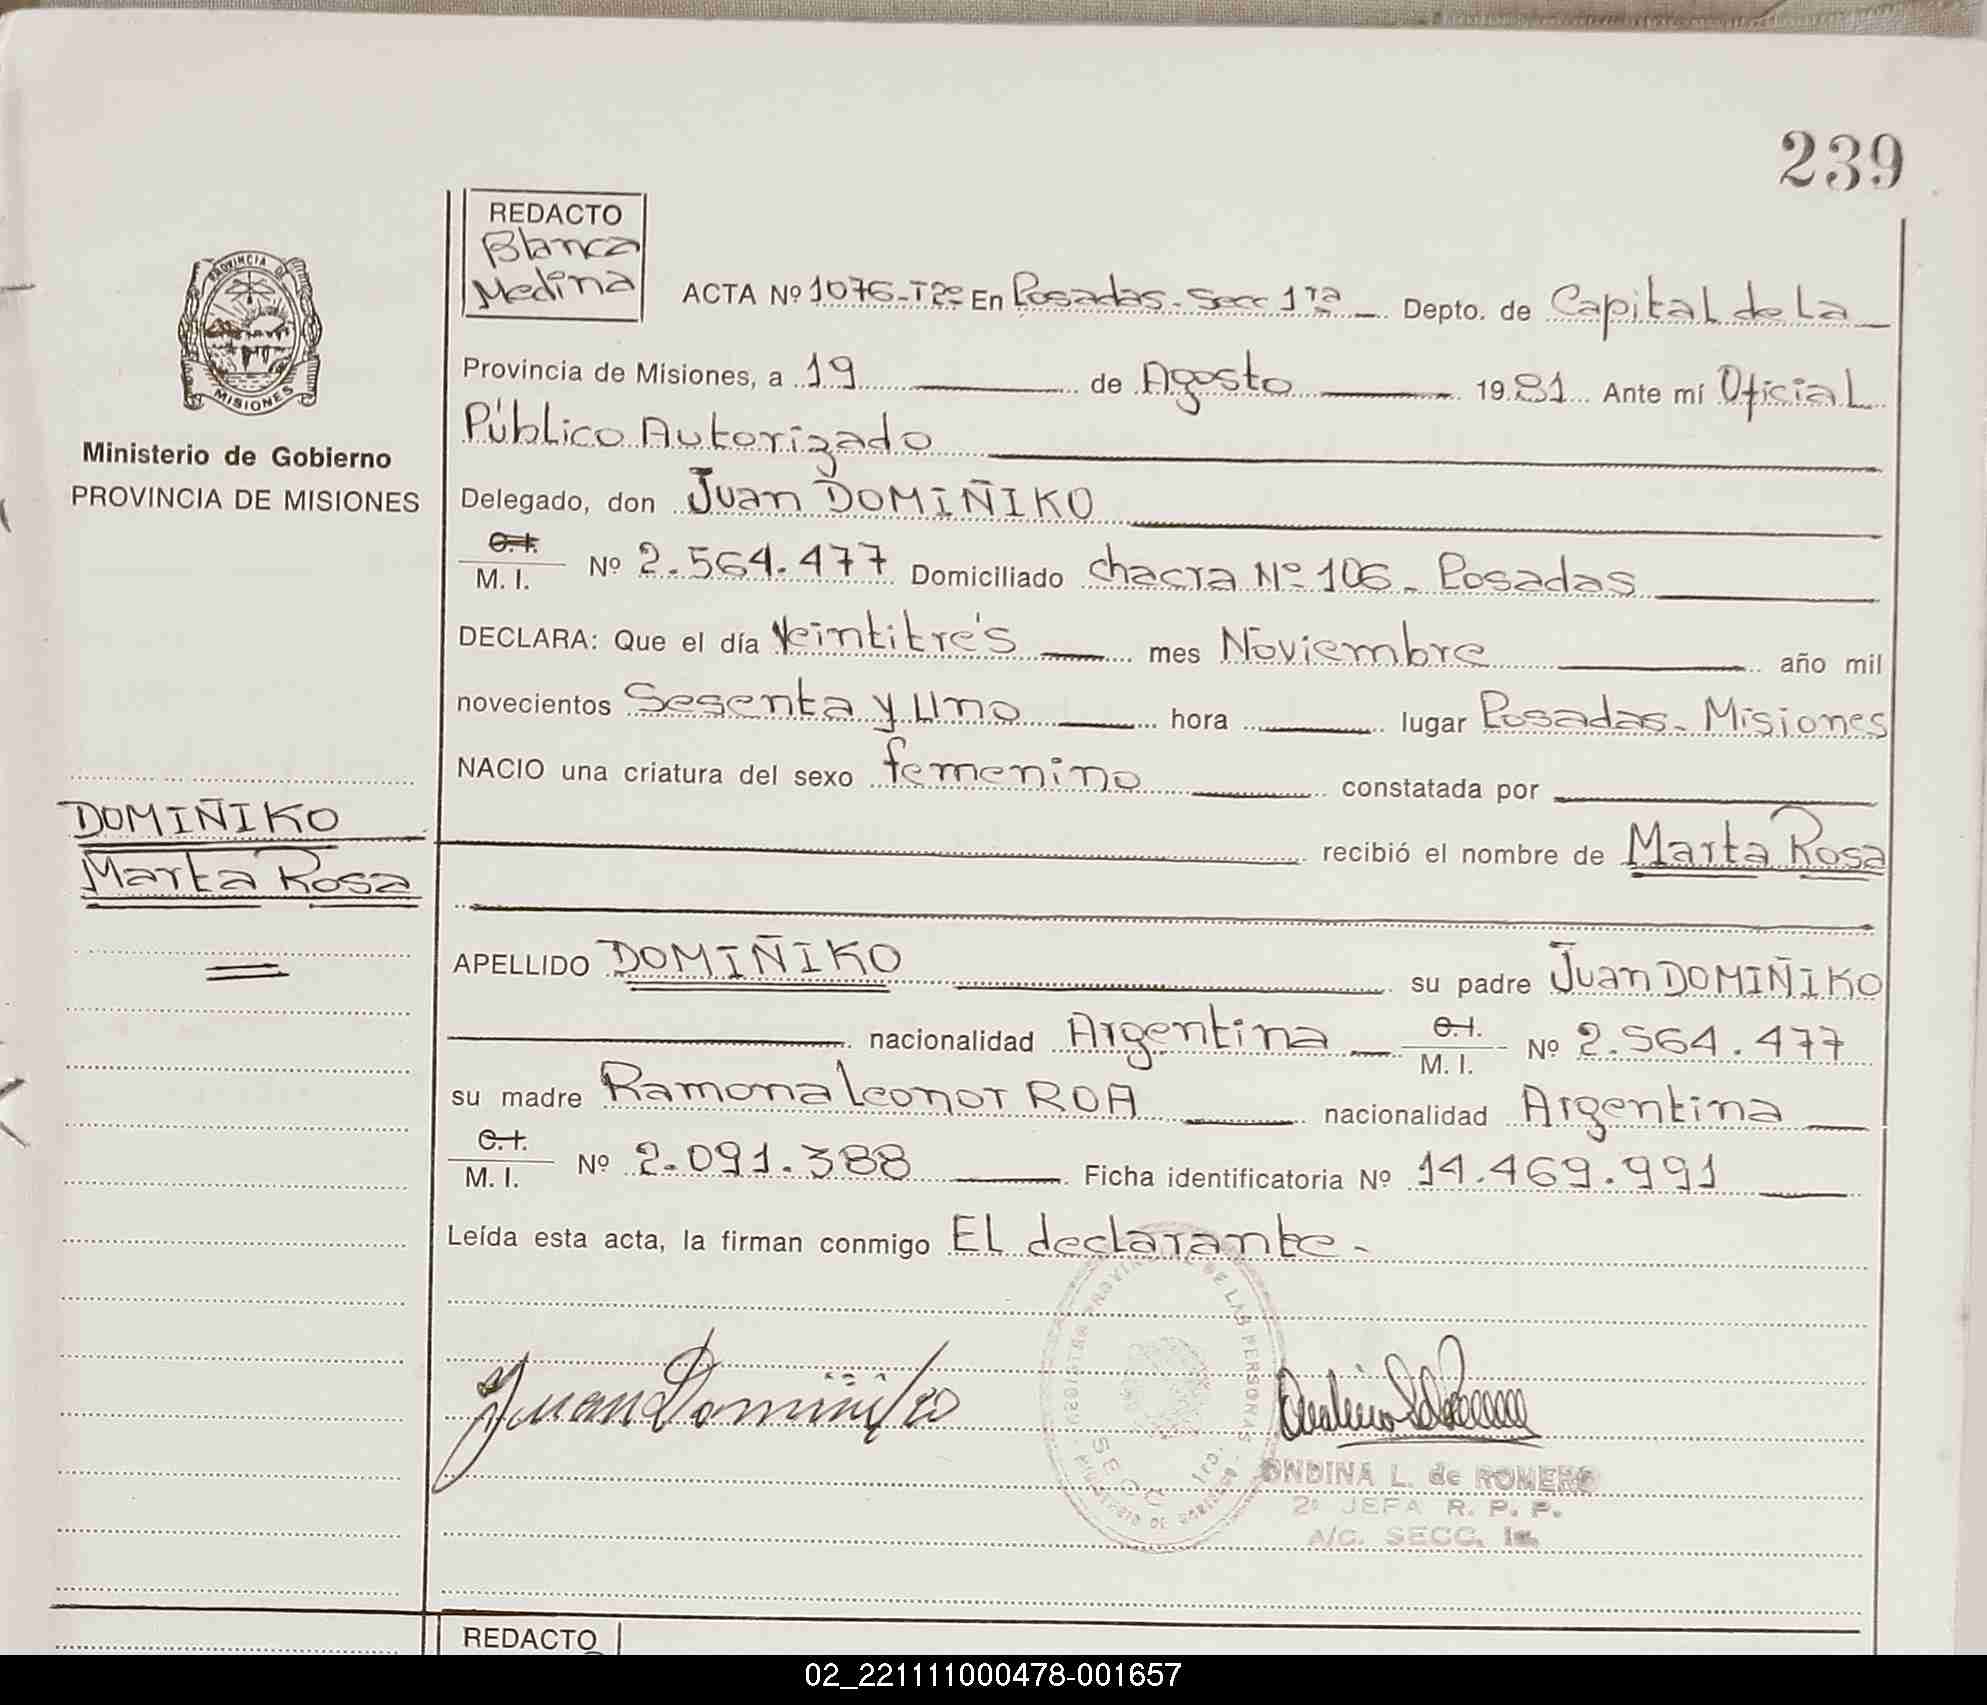 239
REDACTO
Blanca
Medina
ACTA Nº 1076-Tº2º En Posadas - Secc 1ra Depto. de Capital de La
Provincia de Misiones, a 19 de Agosto 1981 Ante mí Oficial
Público Autorizado
PROVINCIA DE
MISIONES
Ministerio de Gobierno
PROVINCIA DE MISIONES
Delegado, don Juan DOMIÑIKO
C.I.
M. I. Nº 2.564.477 Domiciliado chacra Nº 106 - Posadas
DECLARA: Que el día Veintitrés mes Noviembre año mil
novecientos Sesenta y Uno hora lugar Posadas - Misiones
NACIO una criatura del sexo femenino constatada por
recibió el nombre de Marta Rosa
DOMIÑIKO
Marta Rosa
APELLIDO DOMIÑIKO su padre Juan DOMIÑIKO
nacionalidad Argentina C.I.
M. I. Nº 2.564.477
su madre Ramona Leonor ROA nacionalidad Argentina
C.I.
M. I. Nº 2.091.388 Ficha identificatoria Nº 14.469.991
Leída esta acta, la firman conmigo El declarante.-
Juan Domiñiko
DE LAS PERSONAS
SECC. 1ra.
ONDINA L. de ROMERO
2º JEFA R. P. P.
A/C. SECC. 1a.
REDACTO
02_221111000478-001657